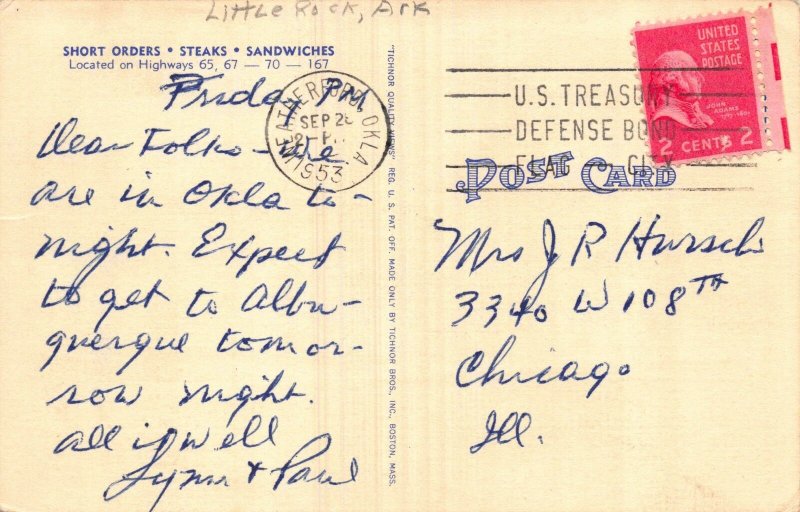 Little Rock, Ark
SHORT ORDERS • STEAKS • SANDWICHES
Located on Highways 65, 67 — 70 — 167
Friday PM
Dear Folks - We
are in Okla to-
night. Expect
to get to Albu-
querque tomor-
row night.
All is well
Lynn & Paul
"TICHNOR QUALITY VIEWS" REG. U. S. PAT. OFF. MADE ONLY BY TICHNOR BROS., INC., BOSTON, MASS.
WEATHERFORD, OKLA
SEP 26
PM
1953
U.S. TREASURY
DEFENSE BOND
FLAG CITY
UNITED
STATES
POSTAGE
JOHN
ADAMS
2 CENTS 2
POST CARD
Mrs J R Hursch
3340 W 108TH
Chicago
Ill.